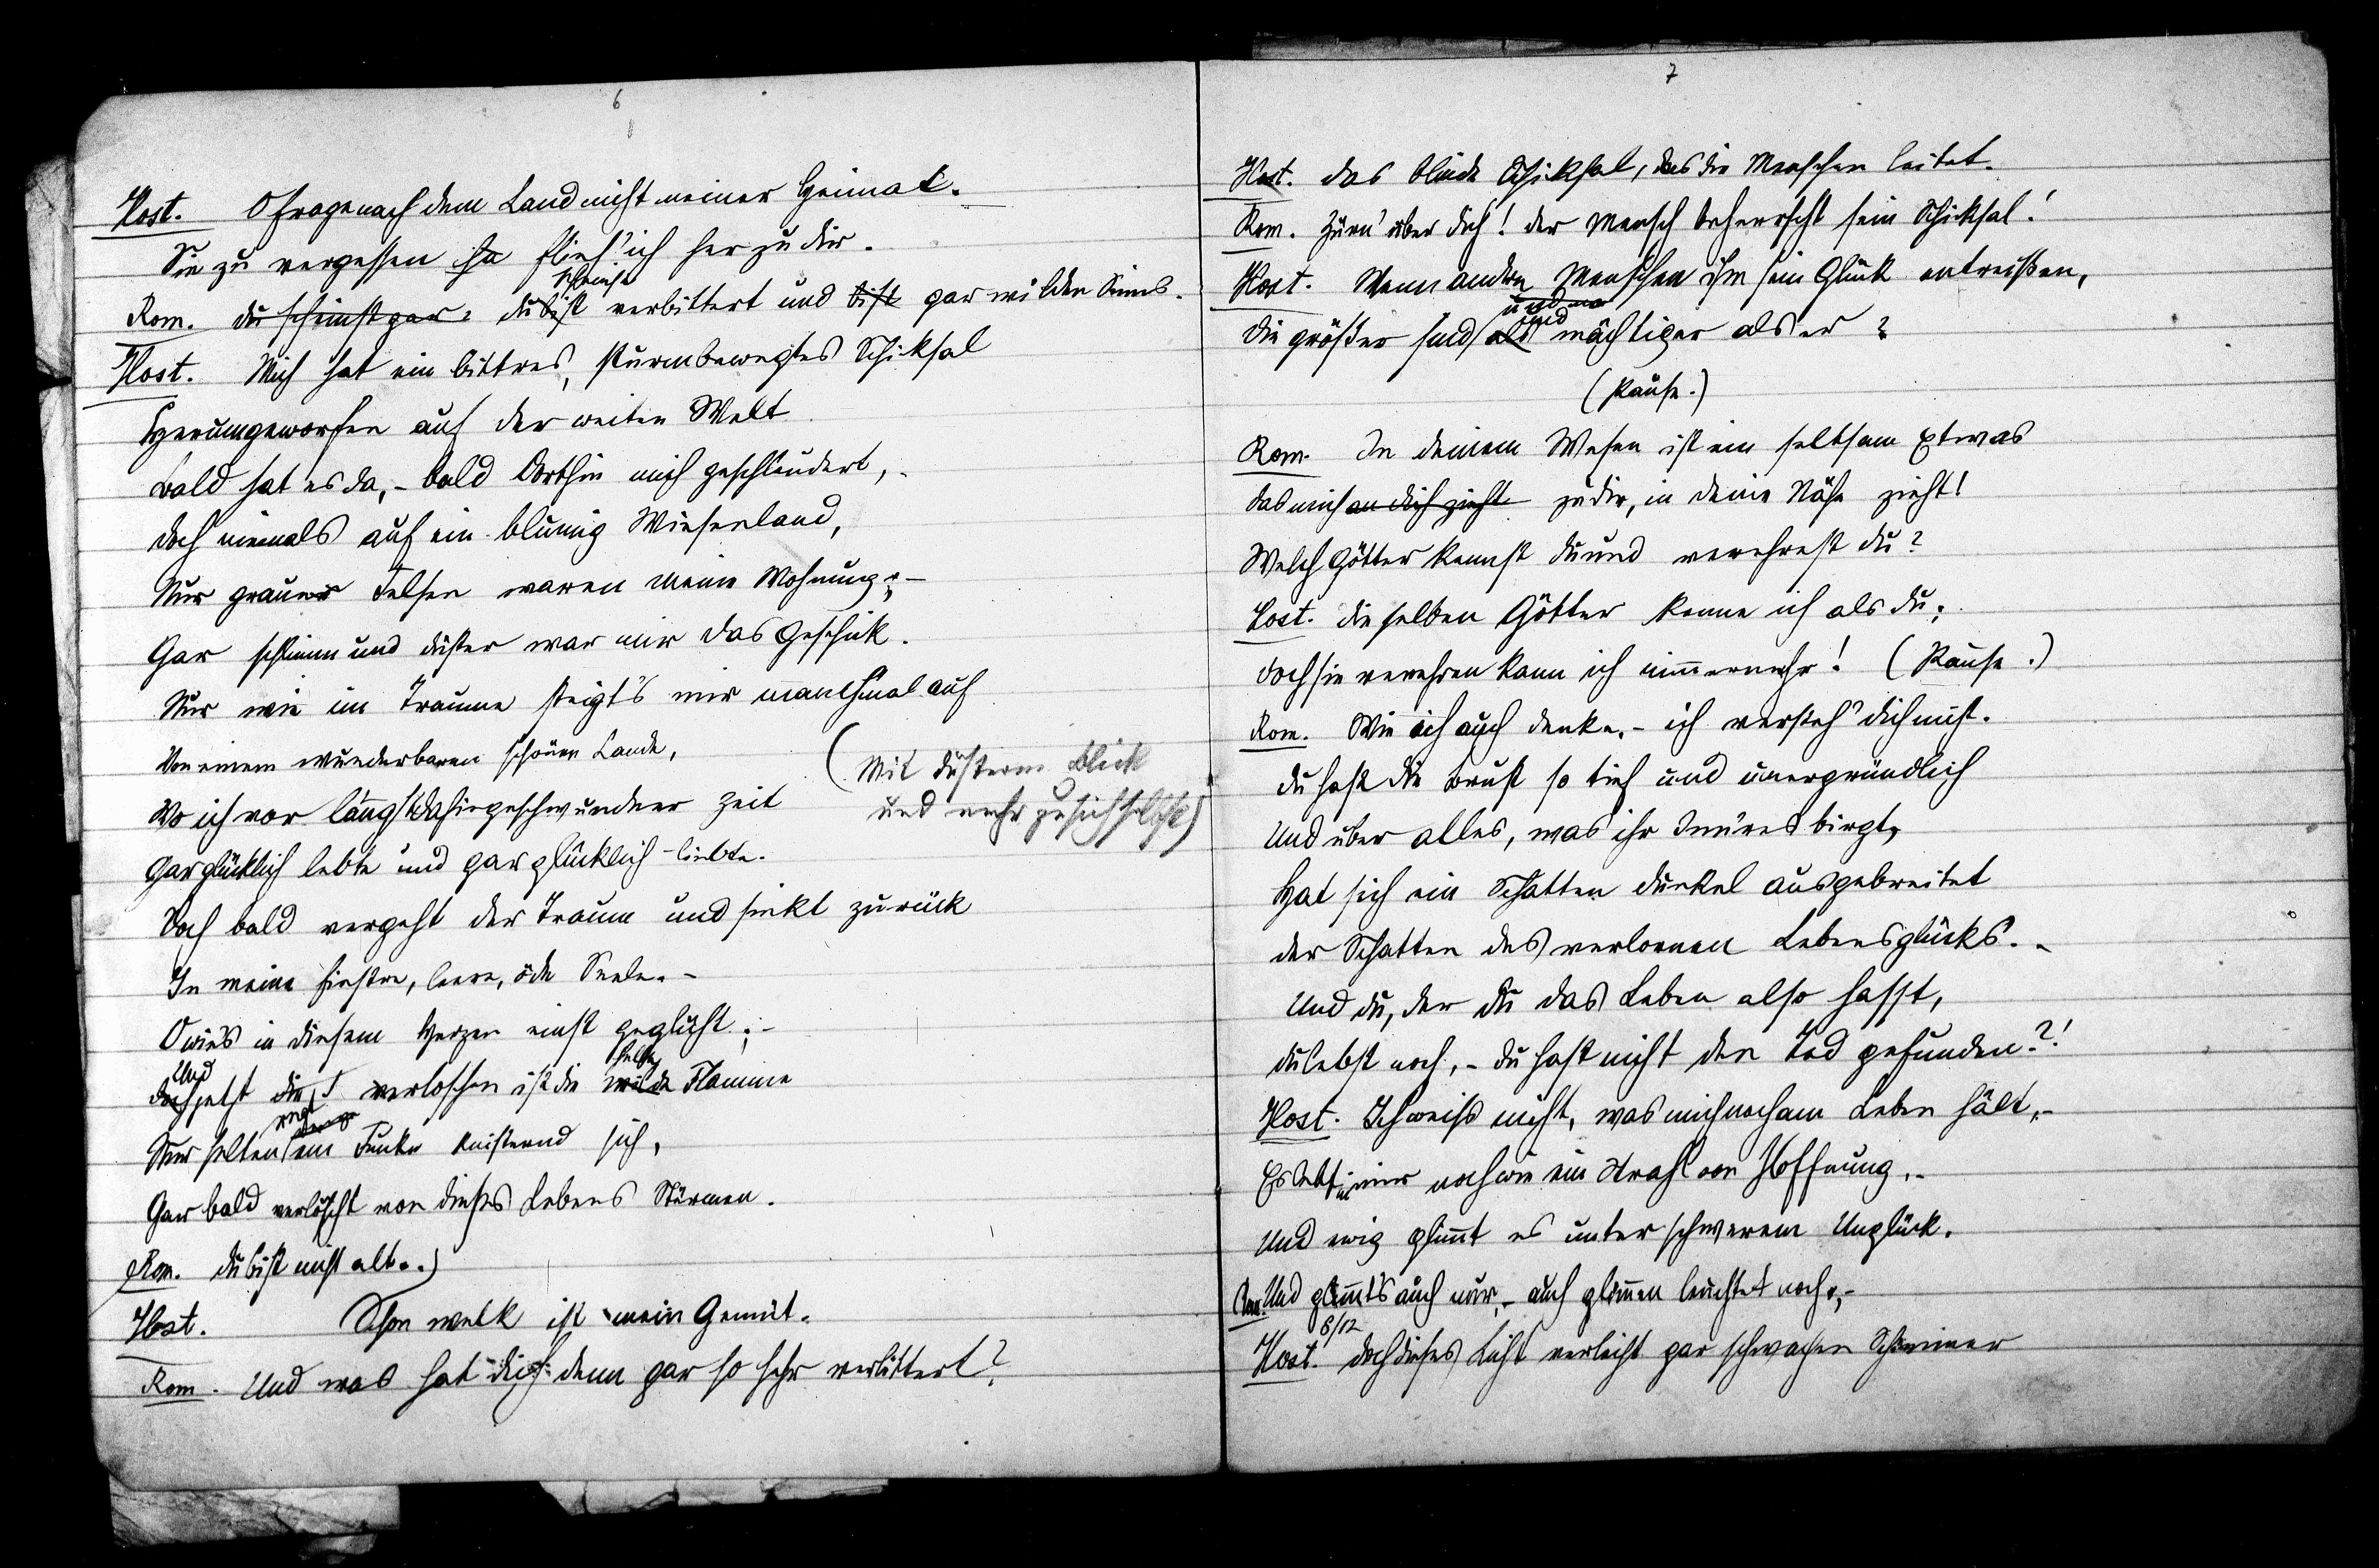 6
Host. O frage nach dem Land nicht meiner Heimat.
Sie zu vergessen flieh' ich her zu dir.
scheinst
Rom. du scheinst gar: du bist verbittert und bist gar wilden Sinns.
Host. Mich hat ein bittres, sturmbewegtes Schiksal
Herumgeworfen auf der weiten Welt
Bald hat es da, - bald dorthin mich geschleudert, -
doch niemals auf ein blumig Wiesenland,
Nur grauer Felsen waren meine Wohnung; -
Gar schlimm und düster war mir das Geschik.
Nur wie im Traume steigt's mir manchmal auf
Von einem wunderbaren schönen Lande,
(Mit düsterm Blick
und mehr zu sich selbst)
Wo ich vor längst dahingeschwundner Zeit
Gar glücklich lebte und gar glücklich - liebte.
Doch bald vergeht der Traum und sinkt zurück
In meine finstre, leere, öde Seele. -
O wie's in diesem Herzen einst geglüht; -
Und helle
doch jetzt die verloschen ist die wilde Flamme
regt
Nur selten ein Funke knisternd sich,
Gar bald verlöscht von dieses Lebens Stürmen.
Rom. du bist nicht alt..)
Host. Schon welk ist mein Gemüt.
Rom. Und was hat dich denn gar so sehr verbittert?
7
Host. das blinde Schiksal, das die Menschen leitet.
Rom. Zürn' über dich! der Mensch beherrscht sein Schicksal!
Host. Wenn andre Menschen ihm sein Glück entreißen,
und
die größer sind als mächtiger als er?
(Pause.)
Rom. In deinem Wesen ist ein seltsam Etwas
das mich an dich zieht zu dir, in deine Nähe zieht!
Welch Götter kennst du und verehrest du?
Host. die selben Götter kenne ich als du;
doch sie verehren kann ich nimmermehr! (Pause.)
Rom. Wie ich auch denke, - ich versteh' dich nicht.
du hast die Brust so tief und unergründlich
Und über alles, was ihr Inn'res birgt,
Hat sich ein Schatten dunkel ausgebreitet
der Schatten des verlornen Lebensglücks. -
Und du, der du das Leben also hasst,
du lebst noch, - du hast nicht den Tod gefunden?!
Host. Ich weiss nicht, was mich noch am Leben hält, -
Es lebt in mir noch wie ein Strahl von Hoffnung, -
Und ewig glimmt es unter schwerem Unglück.
Rom. Und glimmt's auch nur, - auch glimmen leuchtet noch, -
8/12
Host. doch dieses Licht verleiht gar schwachen Schimmer